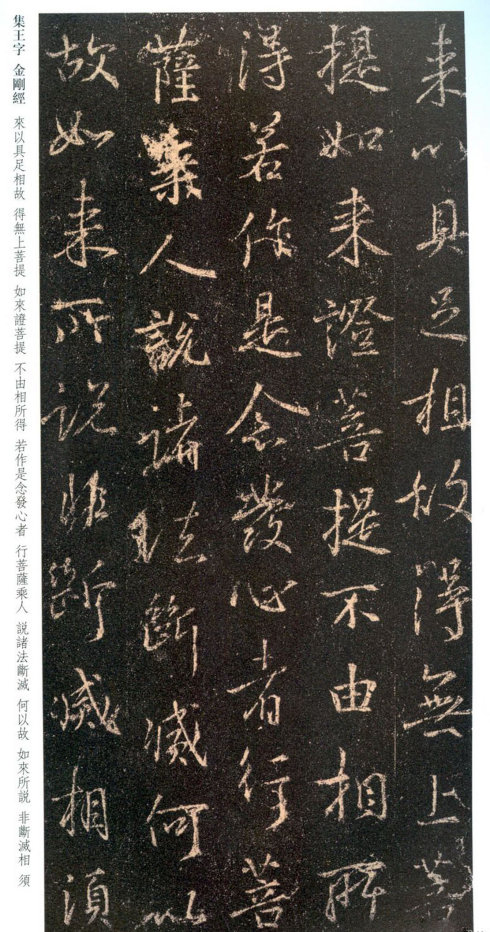 来以具足相故得無上菩
提如来證菩提不由相所
得若作是念發心者行菩
薩乘人說諸法斷滅何以
故如来所說非斷滅相須
集王字 金剛經 來以具足相故 得無上菩提 如來證菩提 不由相所得 若作是念發心者 行菩薩乘人 説諸法斷滅 何以故 如來所説 非斷滅相 須